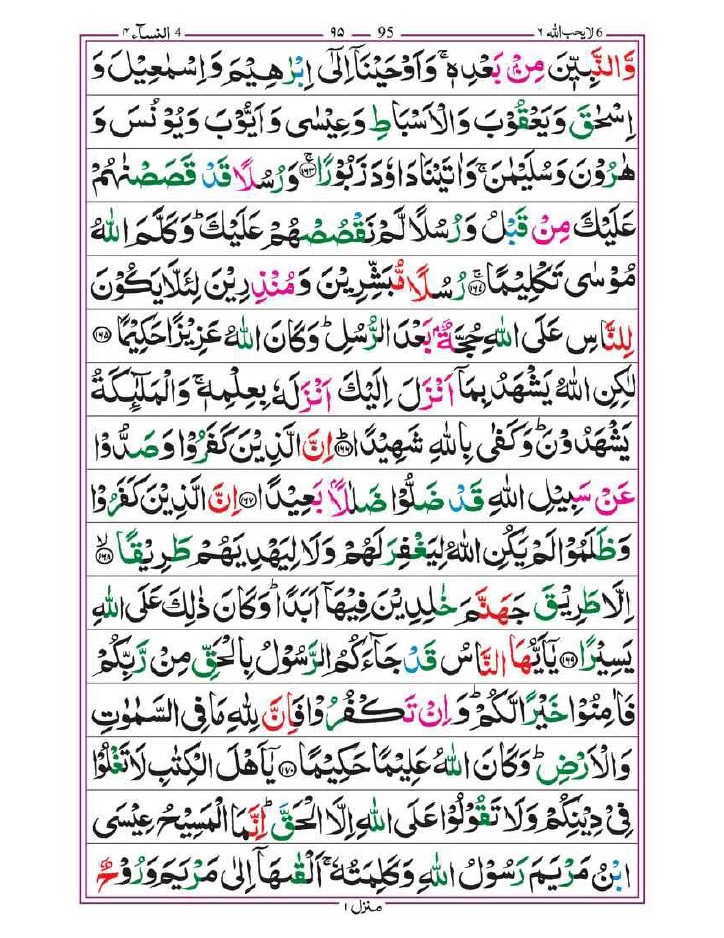 6 لا يحب الله ٦ — 95 — ٩٥ — 4 النسآء ٤
وَّالنَّبِيّٖنَ مِنْۢ بَعْدِهٖ ۚ وَاَوْحَيْنَاۤ اِلٰۤى اِبْرٰهِيْمَ وَاِسْمٰعِيْلَ وَ
اِسْحٰقَ وَيَعْقُوْبَ وَالْاَسْبَاطِ وَعِيْسٰى وَاَيُّوْبَ وَيُوْنُسَ وَ
هٰرُوْنَ وَسُلَيْمٰنَ ۚ وَاٰتَيْنَا دَاوٗدَ زَبُوْرًا ۚ ﴿۱۶۳﴾ وَرُسُلًا قَدْ قَصَصْنٰهُمْ
عَلَيْكَ مِنْ قَبْلُ وَرُسُلًا لَّمْ نَقْصُصْهُمْ عَلَيْكَ ؕ وَكَلَّمَ اللّٰهُ
مُوْسٰى تَكْلِيْمًا ۚ ﴿۱۶۴﴾ رُسُلًا مُّبَشِّرِيْنَ وَمُنْذِرِيْنَ لِئَلَّا يَكُوْنَ
لِلنَّاسِ عَلَى اللّٰهِ حُجَّةٌۢ بَعْدَ الرُّسُلِ ؕ وَكَانَ اللّٰهُ عَزِيْزًا حَكِيْمًا ﴿۱۶۵﴾
لٰكِنِ اللّٰهُ يَشْهَدُ بِمَاۤ اَنْزَلَ اِلَيْكَ اَنْزَلَهٗ بِعِلْمِهٖ ۚ وَالْمَلٰٓئِكَةُ
يَشْهَدُوْنَ ؕ وَكَفٰى بِاللّٰهِ شَهِيْدًا ؕ ﴿۱۶۶﴾ اِنَّ الَّذِيْنَ كَفَرُوْا وَصَدُّوْا
عَنْ سَبِيْلِ اللّٰهِ قَدْ ضَلُّوْا ضَلٰلًاۢ بَعِيْدًا ﴿۱۶۷﴾ اِنَّ الَّذِيْنَ كَفَرُوْا
وَظَلَمُوْا لَمْ يَكُنِ اللّٰهُ لِيَغْفِرَ لَهُمْ وَلَا لِيَهْدِيَهُمْ طَرِيْقًا ۙ ﴿۱۶۸﴾
اِلَّا طَرِيْقَ جَهَنَّمَ خٰلِدِيْنَ فِيْهَاۤ اَبَدًا ؕ وَكَانَ ذٰلِكَ عَلَى اللّٰهِ
يَسِيْرًا ﴿۱۶۹﴾ يٰۤاَيُّهَا النَّاسُ قَدْ جَآءَكُمُ الرَّسُوْلُ بِالْحَقِّ مِنْ رَّبِّكُمْ
فَاٰمِنُوْا خَيْرًا لَّكُمْ ؕ وَاِنْ تَكْفُرُوْا فَاِنَّ لِلّٰهِ مَا فِى السَّمٰوٰتِ
وَالْاَرْضِ ؕ وَكَانَ اللّٰهُ عَلِيْمًا حَكِيْمًا ﴿۱۷۰﴾ يٰۤاَهْلَ الْكِتٰبِ لَا تَغْلُوْا
فِىْ دِيْنِكُمْ وَلَا تَقُوْلُوْا عَلَى اللّٰهِ اِلَّا الْحَقَّ ؕ اِنَّمَا الْمَسِيْحُ عِيْسَى
ابْنُ مَرْيَمَ رَسُوْلُ اللّٰهِ وَكَلِمَتُهٗ ۚ اَلْقٰىهَاۤ اِلٰى مَرْيَمَ وَرُوْحٌ
منزل ۱